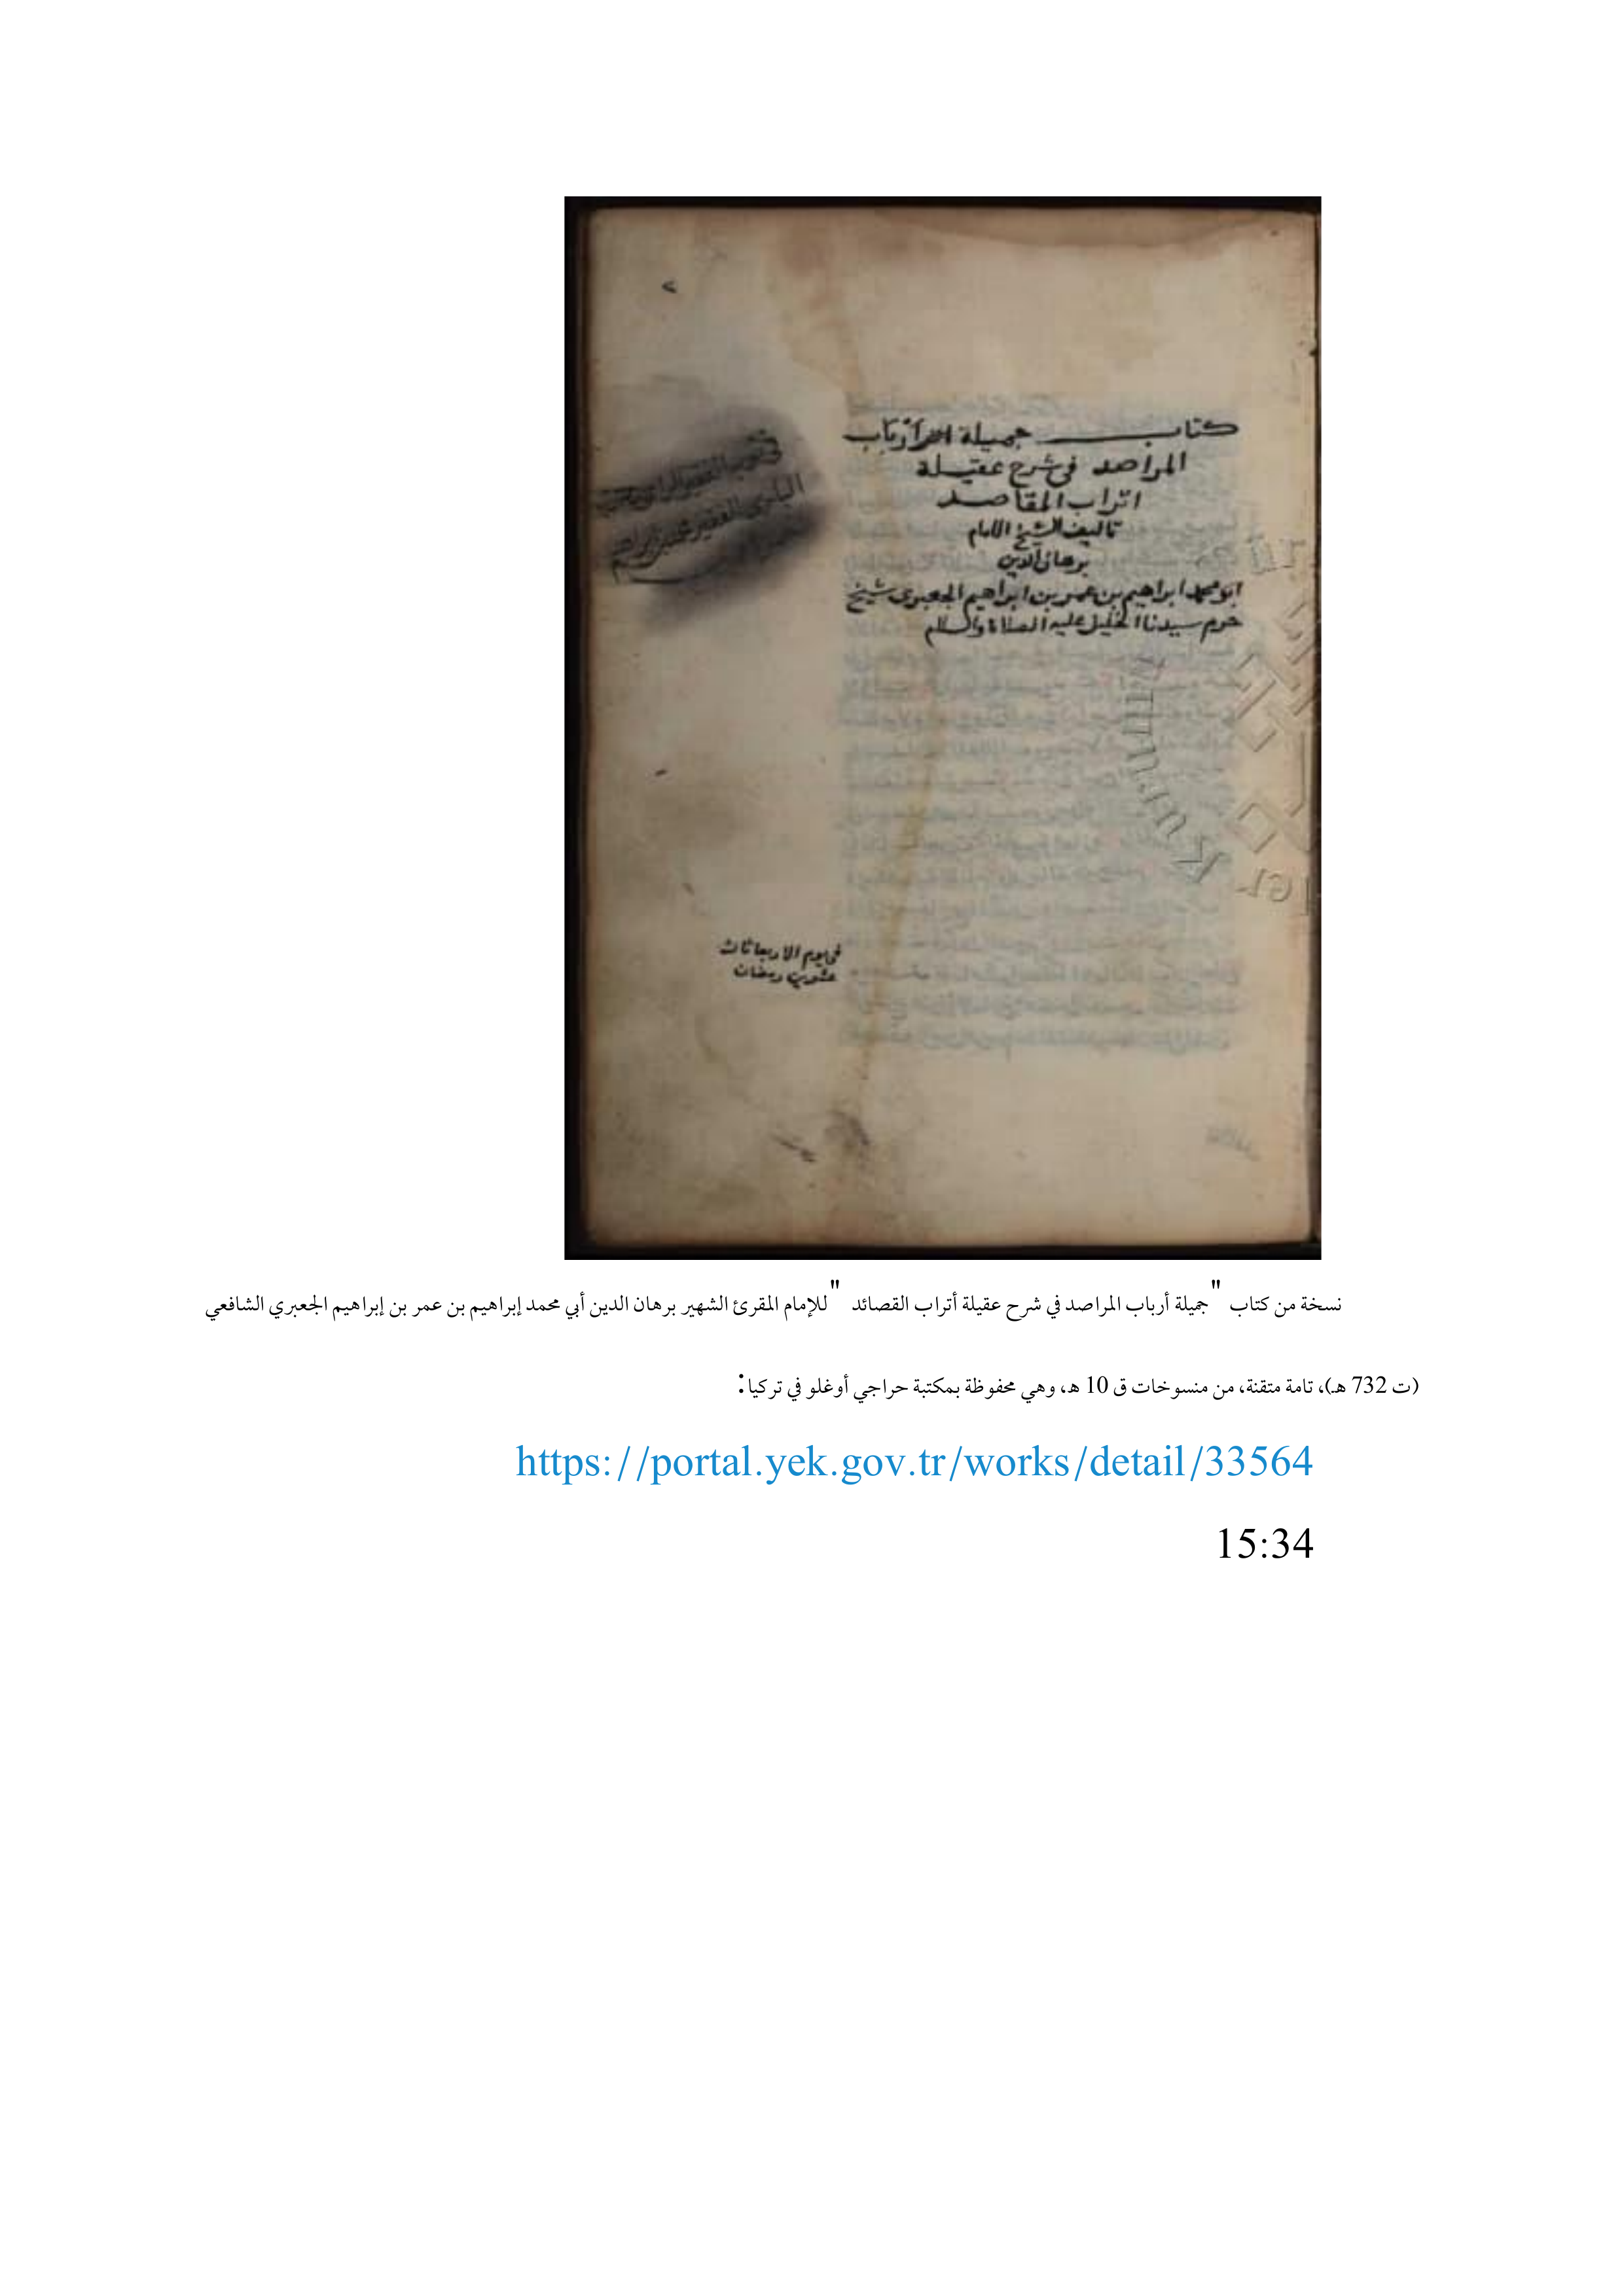 كتاب جميلة ارباب
المراصد في شرح عقيلة
اتراب المقاصد
تاليف الشيخ الامام
برهان الدين
ابو محمد ابراهيم بن عمر بن ابراهيم الجعبري شيخ
حرم سيدنا الخليل عليه الصلاة والسلام
في يوم الاربعا ثالث
عشرين رمضان
نسخة من كتاب "جميلة أرباب المراصد في شرح عقيلة أتراب القصائد "للإمام المقرئ الشهير برهان الدين أبي محمد إبراهيم بن عمر بن إبراهيم الجعبري الشافعي
(ت 732 هـ)، تامة متقنة، من منسوخات ق 10 هـ، وهي محفوظة بمكتبة حراجي أوغلو في تركيا:
https://portal.yek.gov.tr/works/detail/33564
15:34